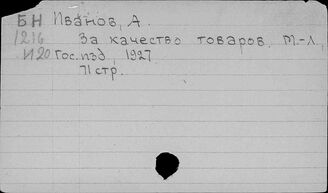 БН Иванов, А.
1216 За качество товаров. М.-Л.,
И20 Гос. изд., 1927.
71 стр.